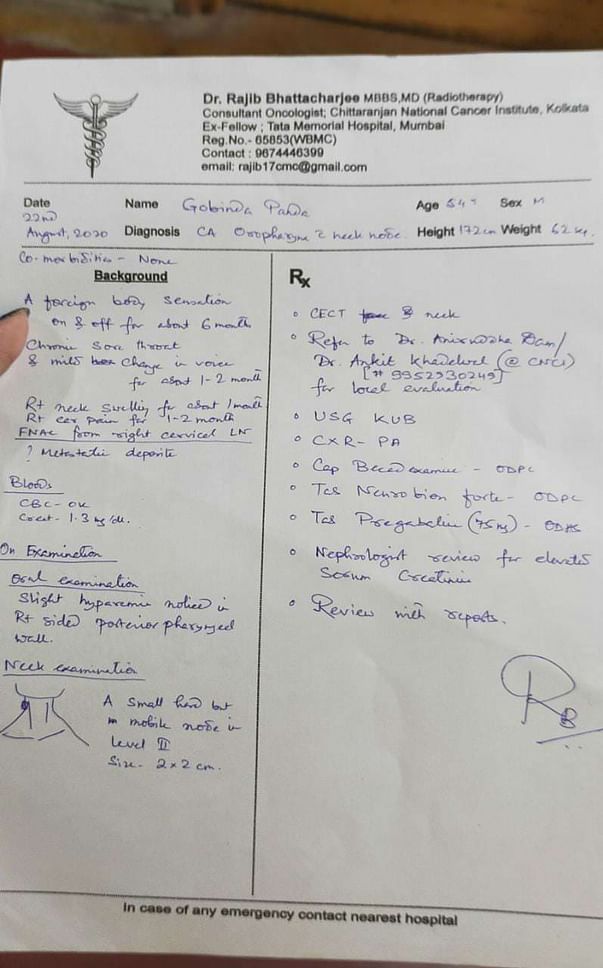 Dr. Rajib Bhattacharjee MBBS,MD (Radiotherapy)
Consultant Oncologist; Chittaranjan National Cancer Institute, Kolkata
Ex-Fellow ; Tata Memorial Hospital, Mumbai
Reg.No.- 65853(WBMC)
Contact : 9674446399
email: rajib17cmc@gmail.com
Date Name Gobinda Age 54 Sex M
22nd
August, 2020 Diagnosis CA Oropharynx neck node. Height 172cm Weight 62 kg.
Co-morbidities - None
Background
A foreign body sensation
on & off for about 6 month
Chronic Sore throat
& mild change in voice
for about 1-2 month
Rt neck swelling for about 1 month
Rt ear pain for 1-2 month
FNAC from right cervical LN
? Metastatic deposite
Bloods
CBC - OK
Creat - 1.3 mg/dl.
On Examination
Oral examination
Slight hyperemia notice in
Rt sided posterior pharyngeal
wall.
Neck examination
A small hard but
mobile node in
level II
Size - 2x2 cm.
Rx
CECT neck
Refer to Dr. Aniruddha Dam/
Dr. Ankit Khandelwal (@ CNCI)
[# 9952930249]
for local evaluation
USG KUB
CXR - PA
Cap - ODPC
Tab Neurobion forte - ODPC
Tab Pregabalin (75mg) - ODHS
Nephrologist review for elevated
Serum Creatinine
Review with reports.
RB
In case of any emergency contact nearest hospital